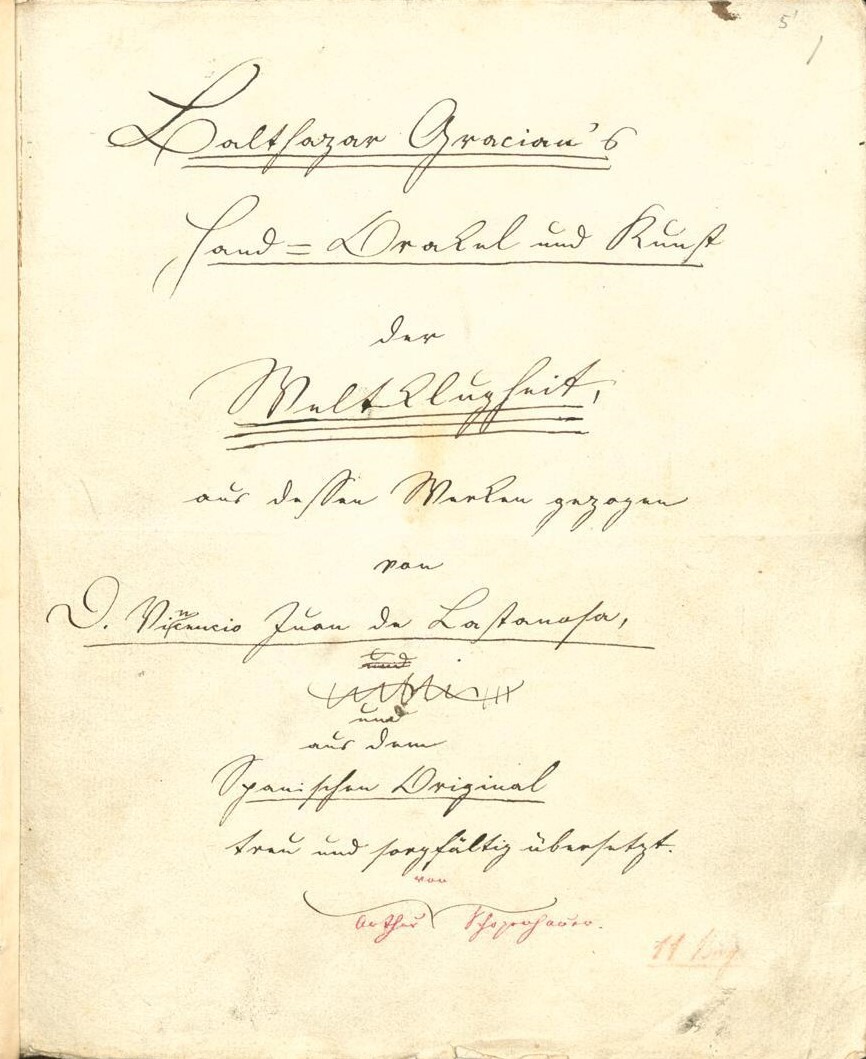 5'
Balthazar Gracian's
Hand=Orakel und Kunst
der
Weltklugheit,
aus dessen Werken gezogen
von
D. Vincencio Juan de Lastanosa,
und
und
aus dem
Spanischen Original
treu und sorgfältig übersetzt.
von
Arthur Schopenhauer.